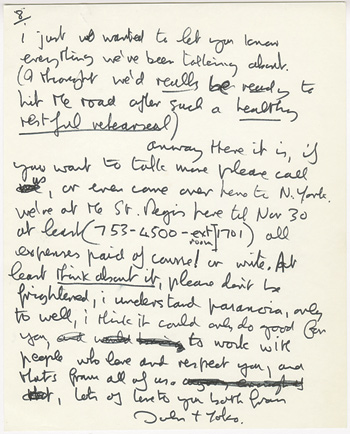 8.
i just wanted to let you know
everything we've been talking about.
(i thought we'd really be ready to
hit the road after such a healthy
restful rehearsal)
anyway there it is, if
you want to talk more please call
us, or even come over here to N. York.
we're at the St. Regis here til Nov 30
at least (753-4500-ext/room 1701) all
expenses paid of course! or write. At
least think about it, please don't be
frightened, i understand paranoia, only
to well, i think it could only do good for
you, to work with
people who love and respect you, and
that's from all of us.
lots of love to you both from
John + Yoko.